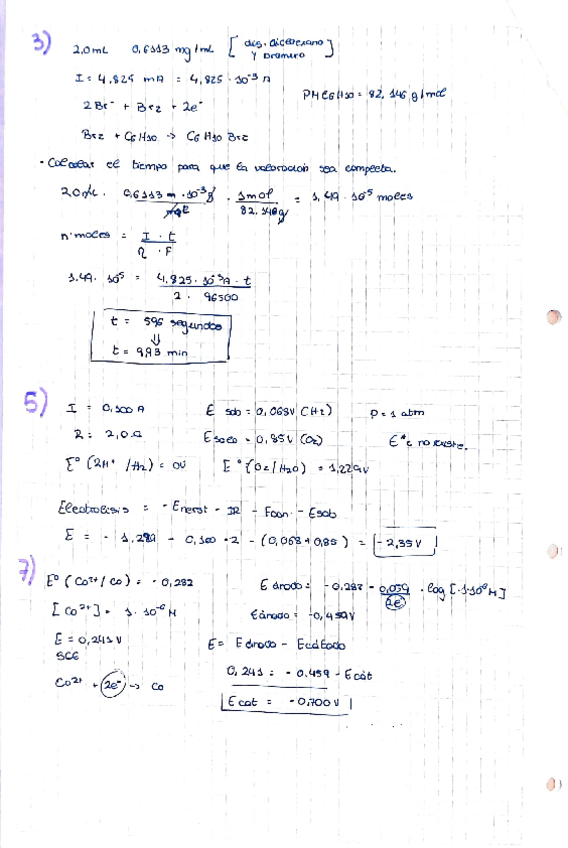 3) 2,0mL 0,6113 mg/mL [ dis. diciclohexano y bromuro ]
I = 4,825 mA = 4,825 · 10⁻³ A
PM C6H10 = 82,146 g/mol
2Br⁻ + Br2 + 2e⁻
Br2 + C6H10 → C6H10Br2
• Calcular el tiempo para que la valoración sea completa.
2,0mL · 0,6113 m · 10⁻³g / mL · 1mol / 82,146g = 1,49 · 10⁻⁵ moles
nºmoles = I · t / n · F
1,49 · 10⁻⁵ = 4,825 · 10⁻³A · t / 2 · 96500
t = 596 segundos
⇓
t = 9,93 min
5) I = 0,100 A E sob = 0,068V (H2) P = 1 atm
R = 2,0 Ω E sob = 0,85V (O2) E*c no existe.
E° (2H⁺ / H2) = 0V E° (O2/H2O) = 1,229V
Electrolisis = - Enernst - IR - Econ. - Esob
E = - 1,229 - 0,100 · 2 - (0,068 + 0,85) = - 2,35 V
7) E° (Co²⁺ / Co) = - 0,282 E ánodo = - 0.282 - 0,059 / 2e⁻ · log [1·10⁻⁶M]
[Co²⁺] = 1 · 10⁻⁶ M Eánodo = -0,459V
E = 0,241 V E = E ánodo - E cátodo
SCE
Co²⁺ + 2e⁻ → Co 0,241 = - 0.459 - E cát
E cat = - 0,700 V